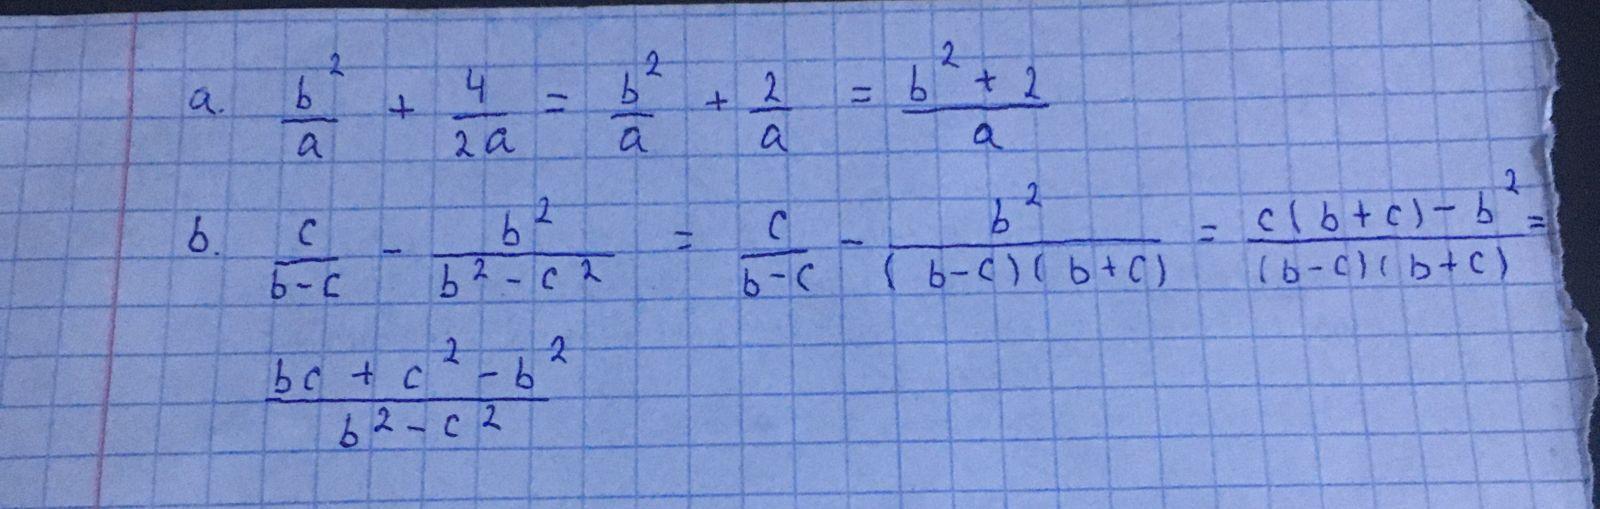 a. b²/a + 4/2a = b²/a + 2/a = b² + 2/a
b. c/b-c - b²/b²-c² = c/b-c - b²/(b-c)(b+c) = c(b+c)-b²/(b-c)(b+c) =
bc + c² - b²/b²-c²